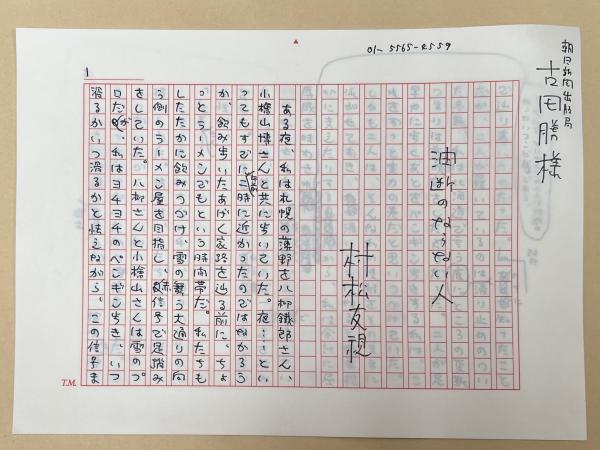 01-5565-4559
朝日新聞出版局
古田勝様
1
油断のならない人
村松友視
ある夜、私は札幌の薄野を八柳鐵郎さん、
小檜山博さんと共に歩いていた。夜……とい
ってもすでに午前二時に近かったのではなかろう
か、飲み歩いたあげく家路を辿る前に、ちょ
っとラーメンでもという時間帯だ。私たちも
したたかに飲みつづけ、雪の舞う大通りの向
う側のラーメン屋を目指し、赤信号で足踏み
をしていた。八柳さんと小檜山さんは雪のプ
ロだが、私はヨチヨチのペンギン歩き、いつ
滑るかいつ滑るかと怯えながら、この信号ま
T.M.